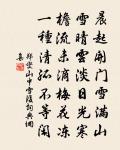 晨起開門雪滿山
雪晴雲淡日光寒
檐流未滴梅花凍
一種清孤不等閑
鄭燮山中雪後詞典網
集